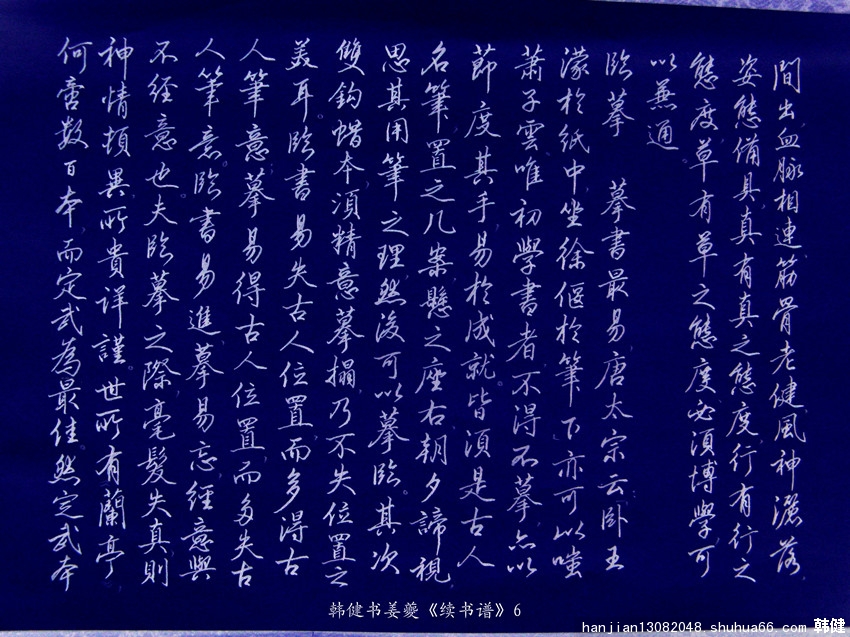 間出血脉相連筋骨老健風神灑落
姿態備具真有真之態度行有行之
態度草有草之態度必須博學可
以兼通
臨摹　摹書最易唐太宗云卧王
濛於紙中坐徐偃於筆下亦可以嗤
蕭子雲唯初學書者不得不摹亦以
節度其手易於成就皆須是古人
名筆置之几案懸之座右朝夕諦視
思其用筆之理然後可以摹臨其次
雙鈎蜡本須精意摹搨乃不失位置之
美耳臨書易失古人位置而多得古
人筆意摹易得古人位置而多失古
人筆意臨書易進摹易忘經意與
不經意也夫臨摹之際毫髮失真則
神情頓異所貴詳謹世所有蘭亭
何啻数百本而定武為最佳然定武本
韩健书姜夔《续书谱》6
hanjian13082048.shuhua66.com 韩健